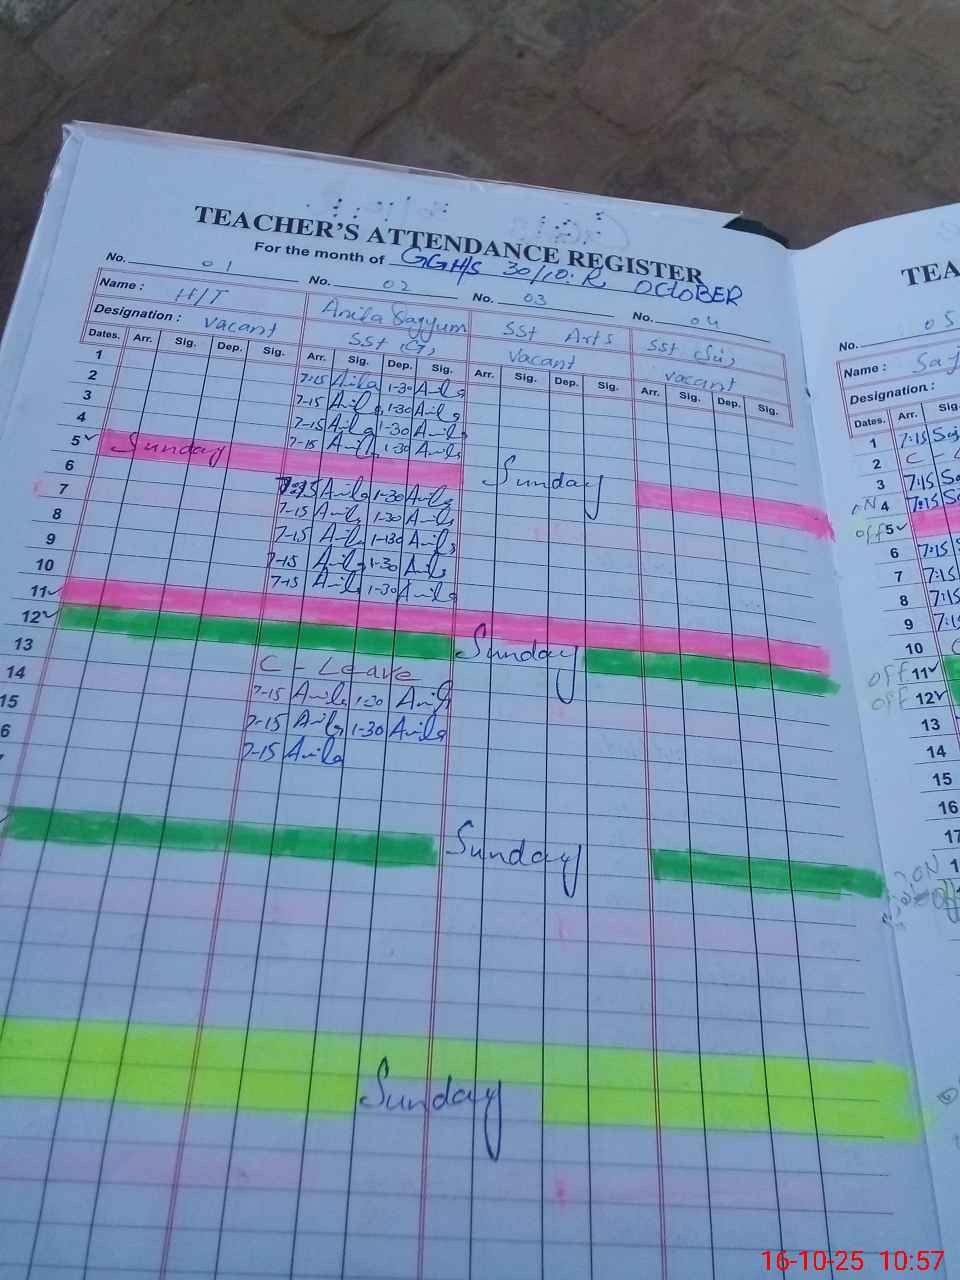 TEACHER'S ATTENDANCE REGISTER
For the month of GGHS 30/10.R OCTOBER
No. 01 No. 02 No. 03 No. 04
Name : H/T Anila Qayyum SST Arts SST (Sci)
Designation : vacant SST (G) vacant vacant
Dates. Arr. Sig. Dep. Sig. Arr. Sig. Dep. Sig. Arr. Sig. Dep. Sig. Arr. Sig. Dep. Sig.
1 7-15 Anila 1-30 Anila
2 7-15 Anila 1-30 Anila
3 7-15 Anila 1-30 Anila
4 7-15 Anila 1-30 Anila
5 Sunday Sunday
6 7:15 Anila 1-30 Anila
7 7-15 Anila 1-30 Anila
8 7-15 Anila 1-30 Anila
9 7-15 Anila 1-30 Anila
10 7-15 Anila 1-30 Anila
11
12 Sunday
13 C - Leave
14 7-15 Anila 1-30 Anila
15 7-15 Anila 1-30 Anila
6 7-15 Anila
Sunday
Sunday
TEA
No. 05
Name :
Designation :
Dates. Arr. Sig.
1 7:15
2 C -
3 7:15
4 7:15
off 5
6 7:15
7 7:15
8 7:15
9
10
off 11
off 12
13
14
15
16
17
16-10-25 10:57